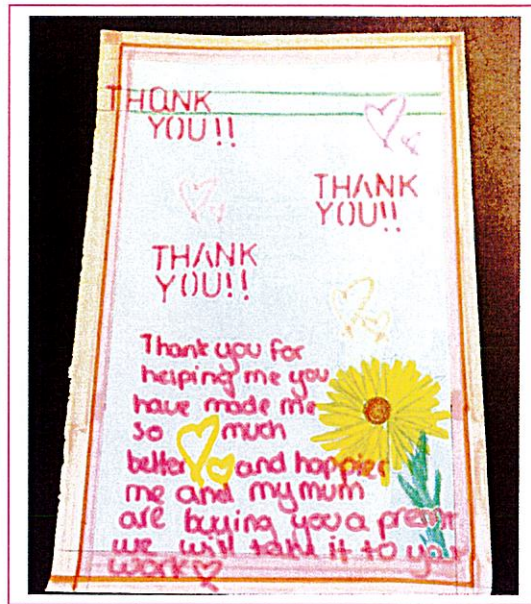 THANK
YOU!!
THANK
YOU!!
THANK
YOU!!
Thank you for
helping me you
have made me
so much
better and happier
me and my mum
are buying you a present
we will take it to your
work